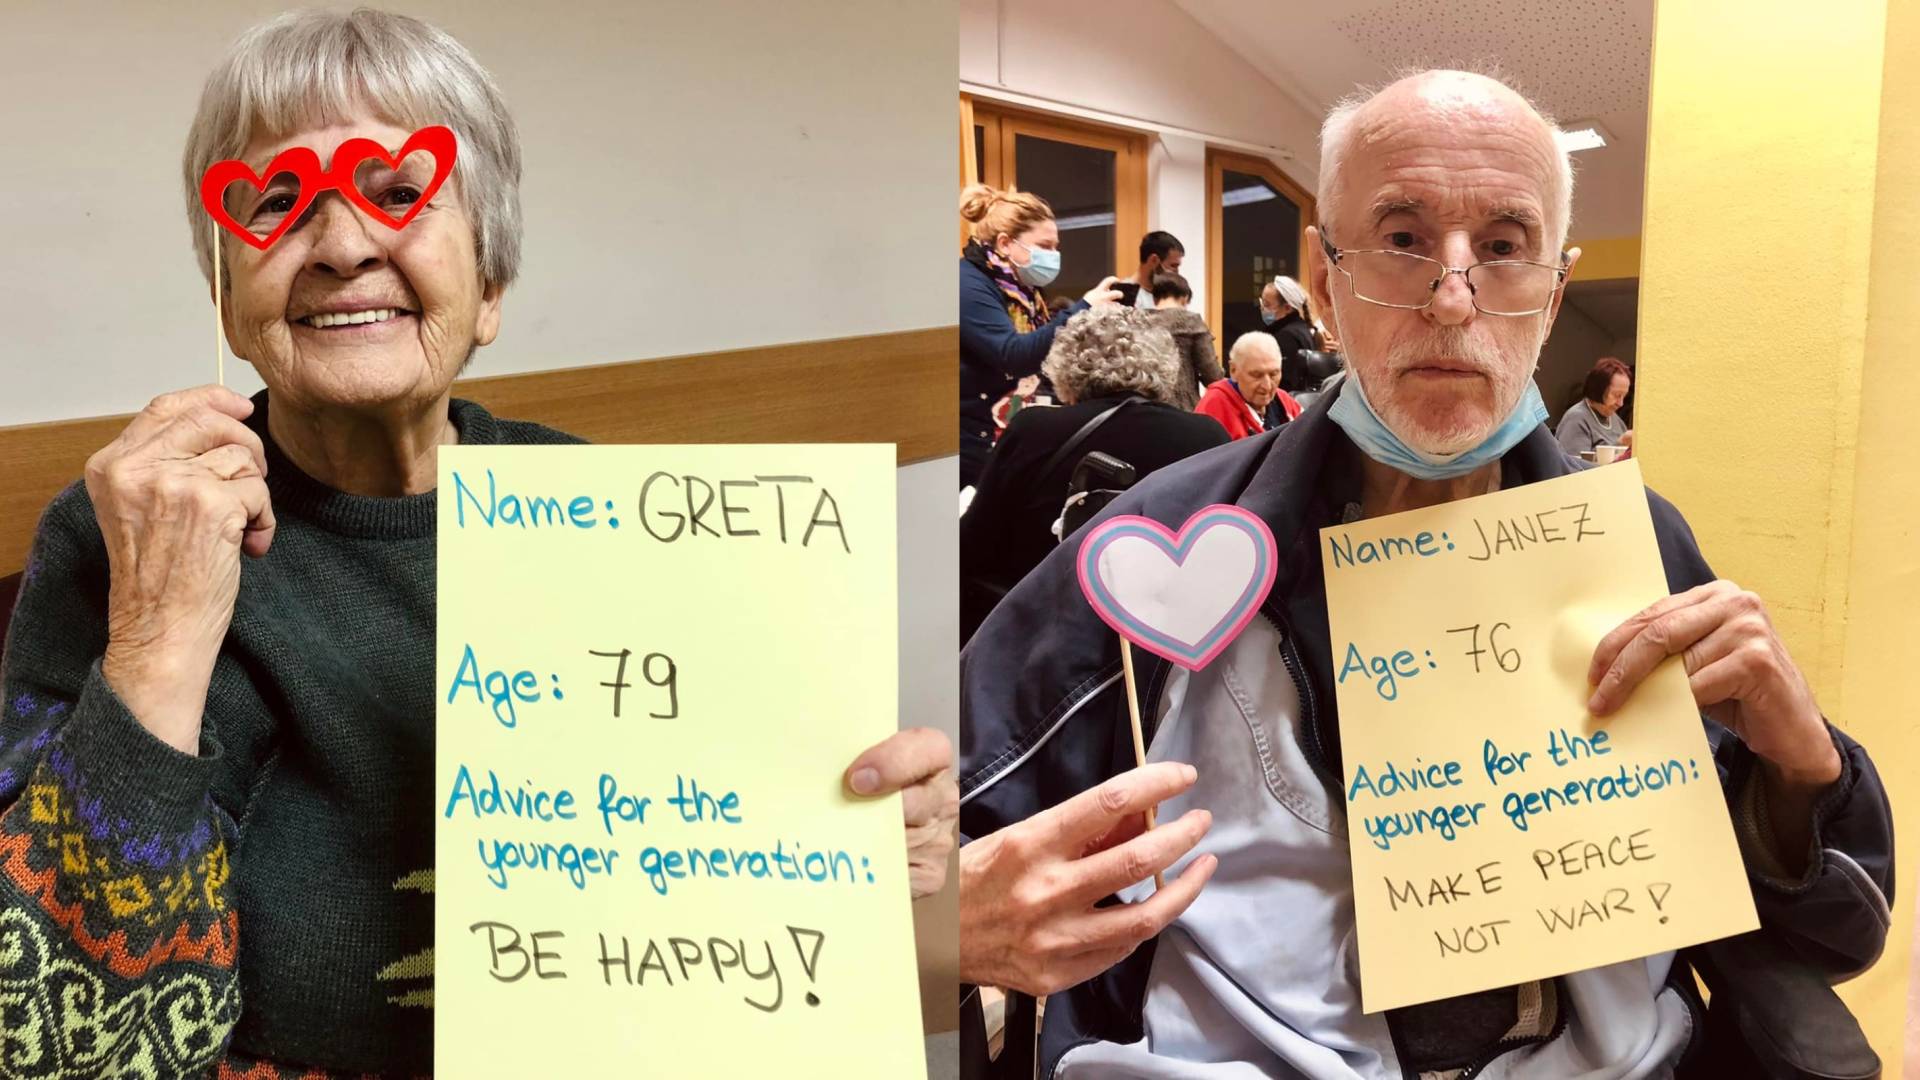 Name: GRETA
Age: 79
Advice for the
younger generation:
BE HAPPY!
Name: JANEZ
Age: 76
Advice for the
younger generation:
MAKE PEACE
NOT WAR!